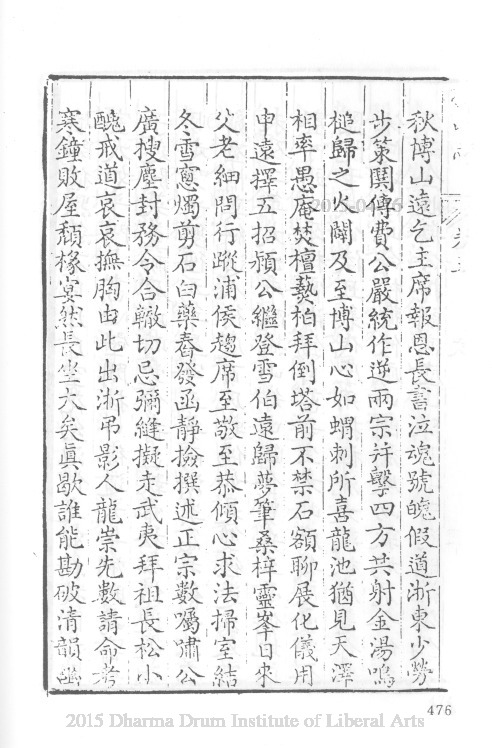 秋博山遠乞主席報恩長書泣魂號魄假道浙東少勞
步策闃傳費公嚴統作逆兩宗并擊四方共射金湯鳴
槌歸之火闢及至博山心如蝟刺所喜龍池猶見天澤
相率愚庵焚檀爇柏拜倒塔前不禁石額聊展化儀用
申遠擇五招頫公繼登雪伯遠歸夢筆桑梓靈峯日來
父老細問行蹤浦侯趨席至敬至恭傾心求法掃室結
冬雪窓燭剪石臼藥舂發函靜撿撰述正宗數囑嘯公
廣搜塵封務令合轍切忌彌縫擬走武夷拜祖長松小
醜戒道哀哀撫胸由此出浙弔影人龍崇先數請命考
寒鐘敗屋頹椽宴然長坐大矣眞歇誰能勘破清韻幽
476
2015 Dharma Drum Institute of Liberal Arts